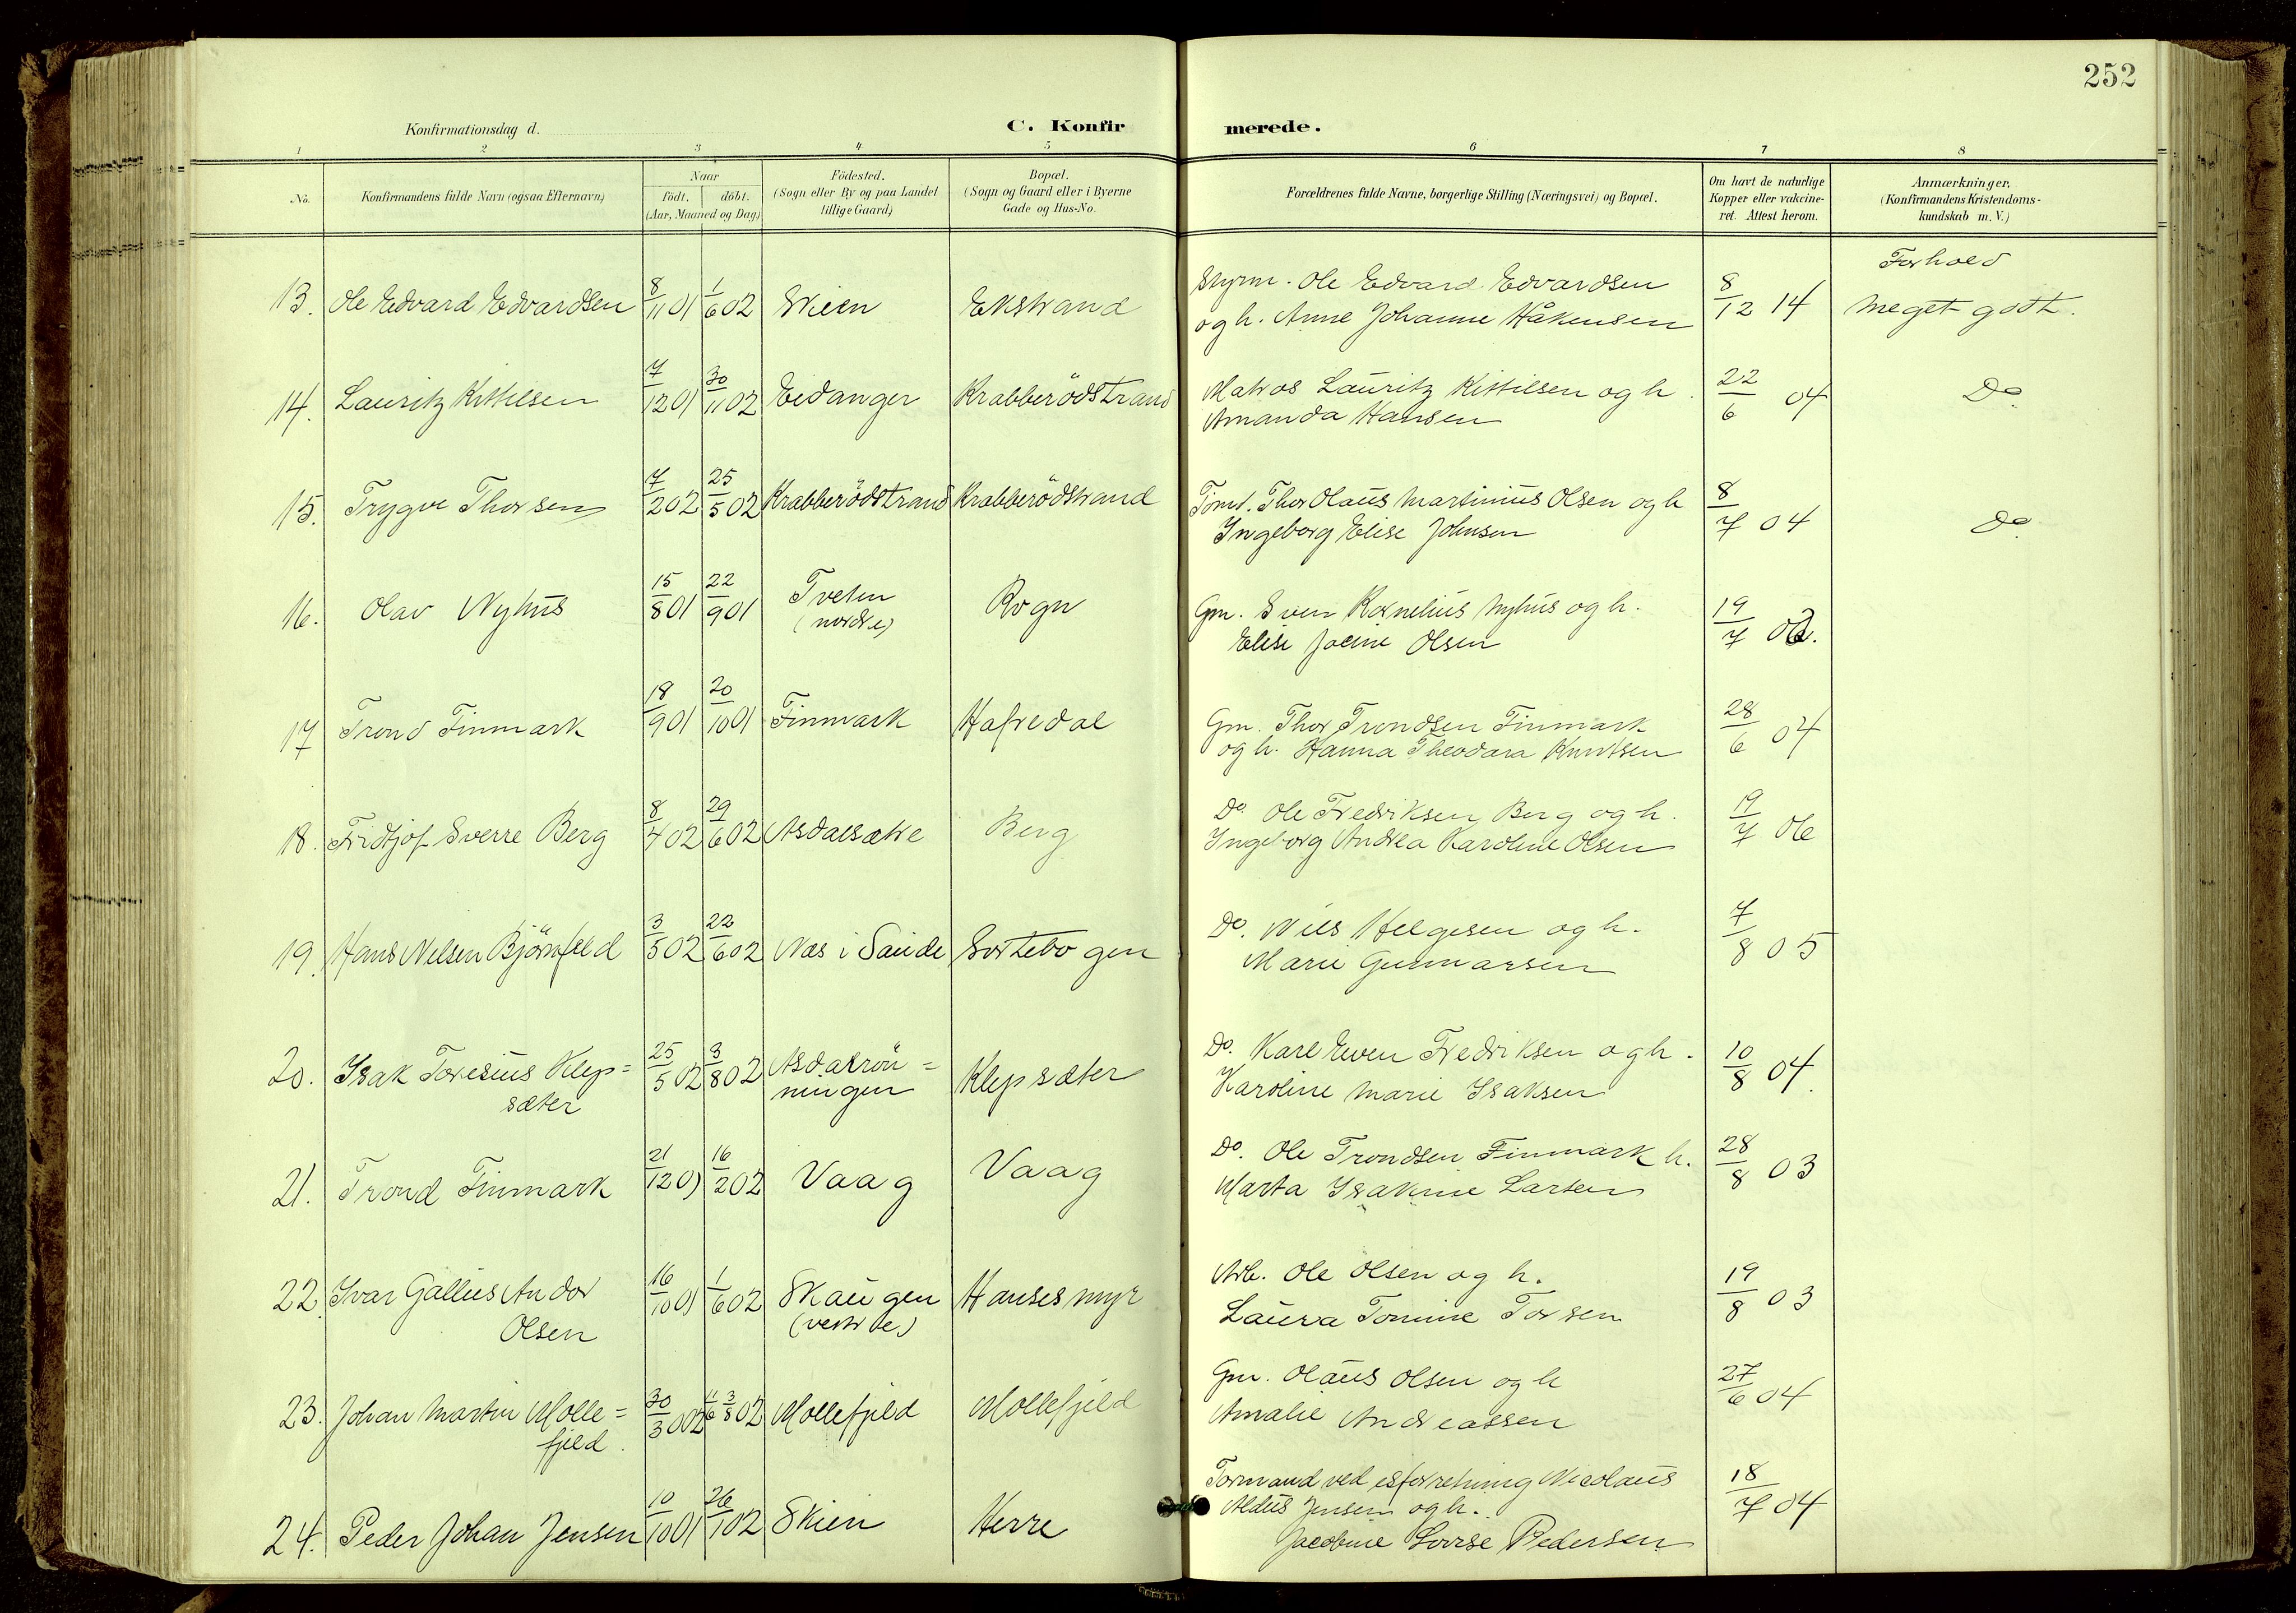 252
Konfirmationsdag d.
C. Konfirmerede.
1 2 3 4 5 6 7 8
No.
Konfirmandens fulde Navn (ogsaa Efternavn)
Naar
födt. döbt.
(Aar, Maaned og Dag)
Födested.
(Sogn eller By og paa Landet
tillige Gaard)
Bopæl.
(Sogn og Gaard eller i Byerne
Gade og Hus-No.
Forældrenes fulde Navne, borgerlige Stilling (Næringsvei) og Bopæl.
Om havt de naturlige
Kopper eller vakcine-
ret. Attest herom.
Anmærkninger.
(Konfirmandens Kristendoms-
kundskab m. V.)
13. Ole Edvard Edvardsen 8/11 01 1/6 02 Skien Ekstrand
Styrm. Ole Edvard Edvardsen
og h. Anne Johanne Håkensen
8/12 14
Forhold
meget godt.
14. Lauritz Kittilsen 7/12 01 30/11 02 Eidanger Krabberödstrand
Matros Lauritz Kittilsen og h.
Amanda Hansen
22/6 04
Do
15. Trygve Thorsen 7/2 02 25/5 02 Krabberödstrand Krabberödstrand
Tömt. Thor Olaus Martinius Olsen og h
Ingeborg Elise Johnsen
8/7 04
Do
16. Olav Nyhus 15/8 01 22/9 01 Tveten
(nordre)
Rogn
Gm. Sven Kornelius Nyhus og h.
Elise Jocine Olsen
19/7
17 Trond Finmark 18/9 01 20/10 01 Finmark Hafredal
Gm. Thor Trondsen Finmark
og h. Hanna Theodora Knutsen
28/6 04
18. Fridtjof Sverre Berg 8/4 02 29/6 02 Asdalsætre Berg
Do Ole Fredriksen Berg og h.
Ingeborg Andrea Karoline Olsen
19/7 06
19. Hans Nelsen Björnfeld 3/5 02 22/6 02 Næs i Saude Svartebogen
Do. Nils Helgesen og h.
Marie Gunnarsen
7/8 05
20. Isak Toresius Klep=
sæter
25/5 02 3/8 02 Asdalrön=
ningen
Klepsæter
Do. Karl Even Fredriksen og h.
Karoline Marie Isaksen
10/8 04.
21. Trond Finmark 21/12 01 16/2 02 Vaag Vaag
Do. Ole Trondsen Finmark h.
Marta Isakine Larsen
28/8 03
22. Ivar Gallus Andor
Olsen
16/10 01 1/6 02 Skaugen
(vestre)
Hansesmyr
Arb. Ole Olsen og h.
Laura Tomine Torsen
19/8 03
23. Johan Martin Molle=
fjeld.
30/3 02 11/6 3/8 02 Mollefjeld Mollefjeld
Gm. Olaus Olsen og h
Amalie Andreassen
27/6 04
24. Peder Johan Jensen 10/10 01 26/1 02 Skien Herre
Formand ved isforretning Nicolaus
Aldus Jensen og h.
Jacobine Lovise Pedersen
18/7 04